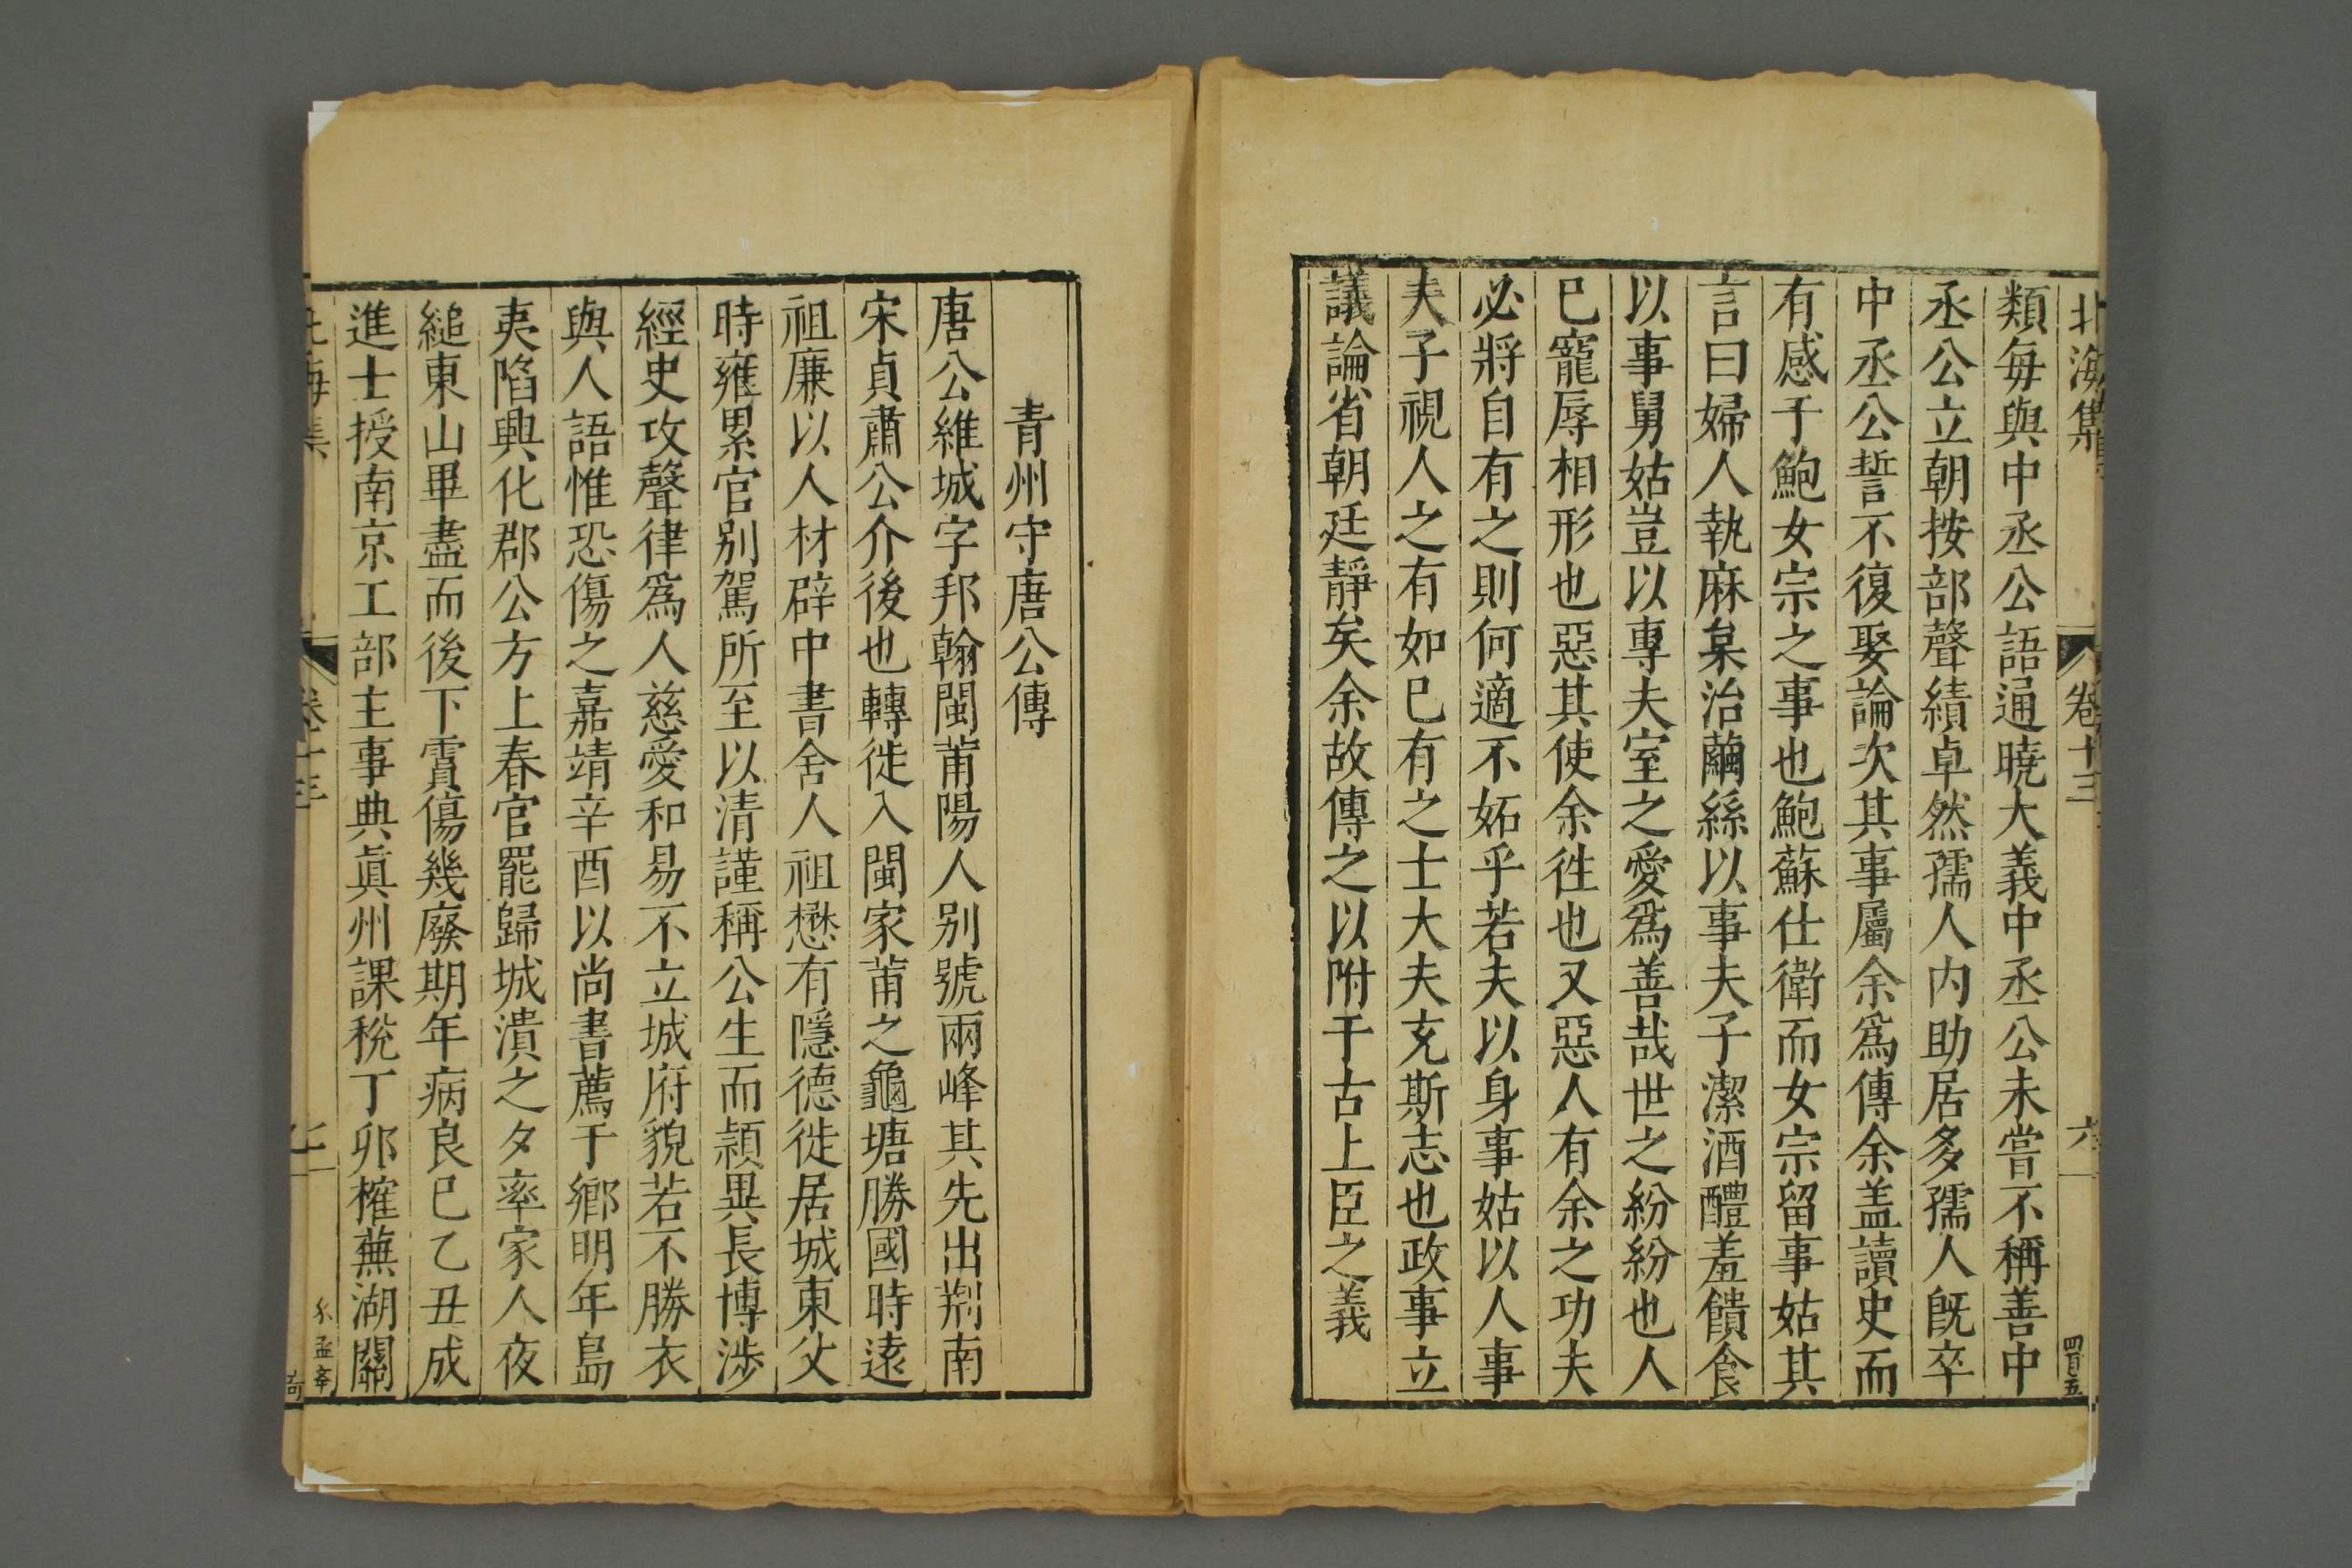 北海集 卷十三 六 四百五
類每與中丞公語通曉大義中丞公未嘗不稱善中
丞公立朝按部聲績卓然孺人内助居多孺人旣卒
中丞公誓不復娶論次其事屬余爲傳余盖讀史而
有感于鮑女宗之事也鮑蘇仕衛而女宗留事姑其
言曰婦人執麻枲治繭絲以事夫子潔酒醴羞饋食
以事舅姑豈以專夫室之愛爲善哉世之紛紛也人
已寵辱相形也惡其使余徃也又惡人有余之功夫
必將自有之則何適不妬乎若夫以身事姑以人事
夫子視人之有如已有之士大夫充斯志也政事立
議論省朝廷靜矣余故傳之以附于古上臣之義
青州守唐公傳
唐公維城字邦翰閩莆陽人别號兩峰其先出荆南
宋貞肅公介後也轉徙入閩家莆之龜塘勝國時遠
祖廉以人材辟中書舍人祖懋有隱德徙居城東父
時雍累官别駕所至以清謹稱公生而頴異長博涉
經史攻聲律爲人慈愛和易不立城府貌若不勝衣
與人語惟恐傷之嘉靖辛酉以尚書薦于鄉明年島
夷陷興化郡公方上春官罷歸城潰之夕率家人夜
縋東山畢盡而後下霣傷幾廢期年病良已乙丑成
進士授南京工部主事典眞州課稅丁卯榷蕪湖關
海集